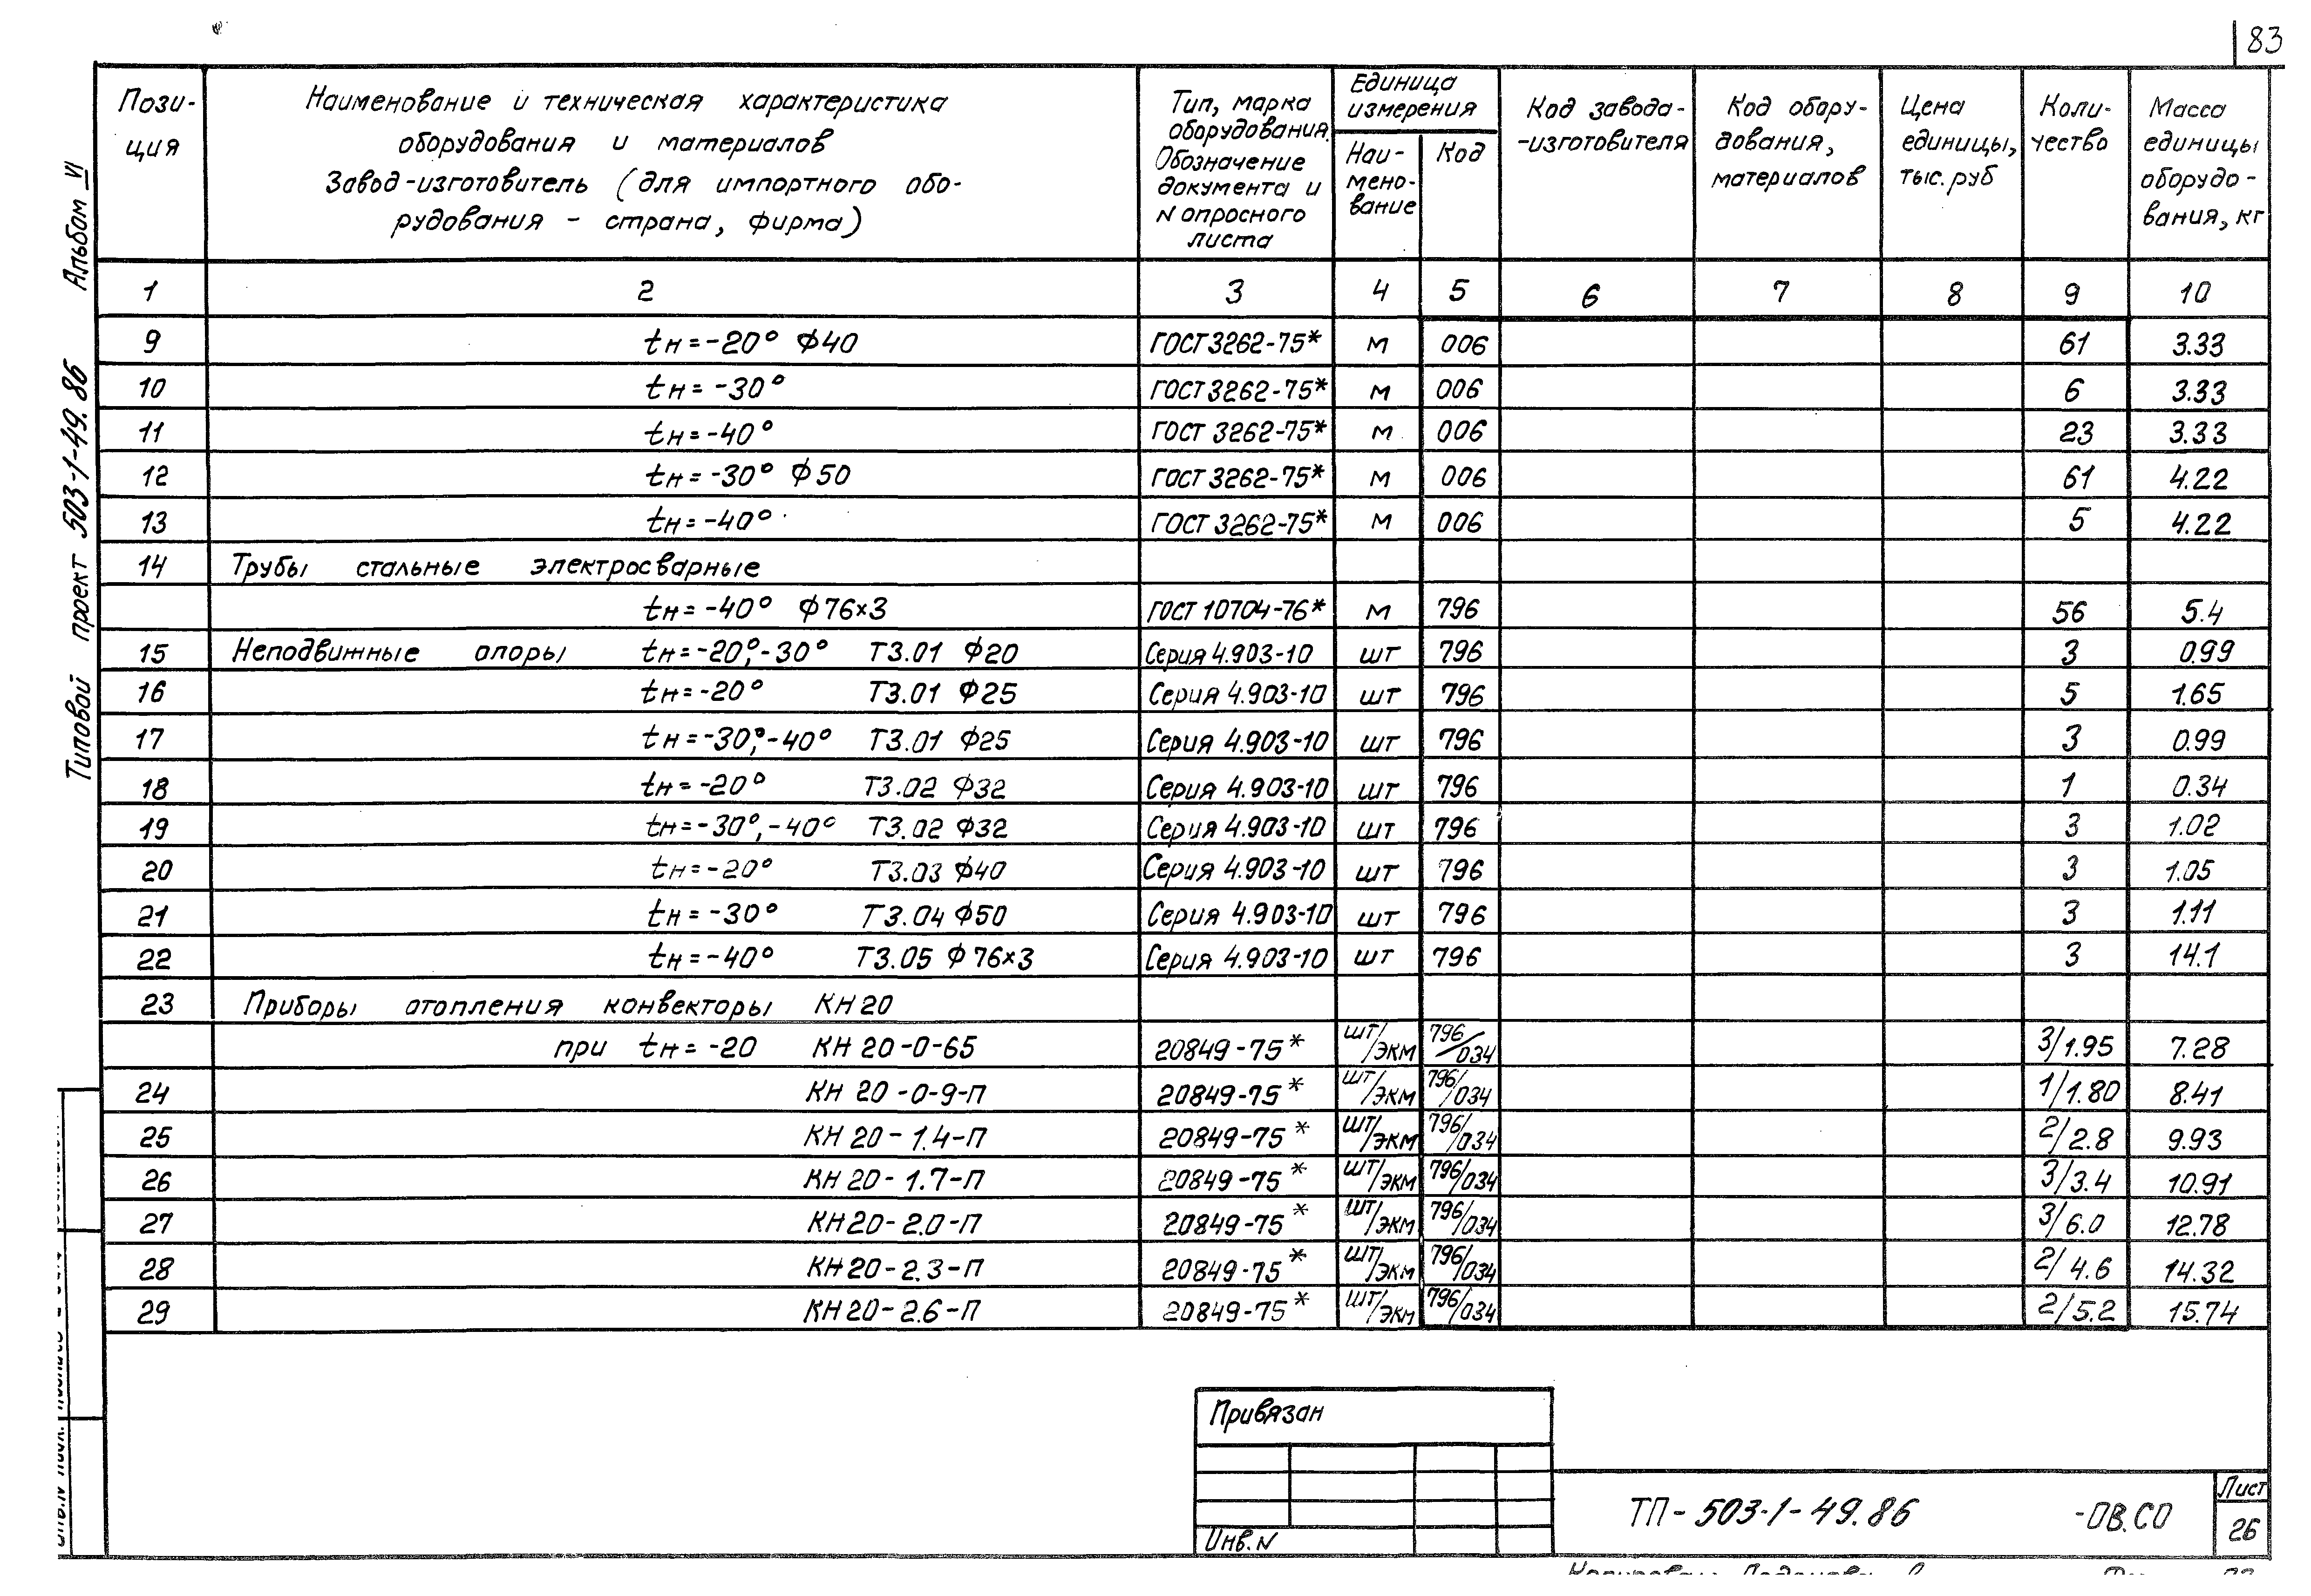 83
Пози-
ция
Наименование и техническая характеристика
оборудования и материалов
Завод-изготовитель (для импортного обо-
рудования - страна, фирма)
Тип, марка
оборудования.
Обозначение
документа и
N опросного
листа
Единица
измерения
Наи-
мено-
вание
Код
Код завода-
-изготовителя
Код обору-
дования,
материалов
Цена
единицы,
тыс. руб
Коли-
чество
Масса
единицы
оборудо-
вания, кг
1 2 3 4 5 6 7 8 9 10
9 tн=-20° ф40 ГОСТ 3262-75* м 006 61 3.33
10 tн=-30° ГОСТ 3262-75* м 006 6 3.33
11 tн=-40° ГОСТ 3262-75* м 006 23 3.33
12 tн=-30° ф50 ГОСТ 3262-75* м 006 61 4.22
13 tн=-40° ГОСТ 3262-75* м 006 5 4.22
14 Трубы стальные электросварные
tн=-40° ф76×3 ГОСТ 10704-76* м 796 56 5.4
15 Неподвижные опоры tн=-20°,-30° Т3.01 ф20 Серия 4.903-10 шт 796 3 0.99
16 tн=-20° Т3.01 ф25 Серия 4.903-10 шт 796 5 1.65
17 tн=-30°,-40° Т3.01 ф25 Серия 4.903-10 шт 796 3 0.99
18 tн=-20° Т3.02 ф32 Серия 4.903-10 шт 796 1 0.34
19 tн=-30°,-40° Т3.02 ф32 Серия 4.903-10 шт 796 3 1.02
20 tн=-20° Т3.03 ф40 Серия 4.903-10 шт 796 3 1.05
21 tн=-30° Т3.04 ф50 Серия 4.903-10 шт 796 3 1.11
22 tн=-40° Т3.05 ф76×3 Серия 4.903-10 шт 796 3 14.1
23 Приборы отопления конвекторы КН20
при tн=-20 КН 20-0-65 20849-75* шт/экм 796/034 3/1.95 7.28
24 КН 20-0-9-П 20849-75* шт/экм 796/034 1/1.80 8.41
25 КН 20-1.4-П 20849-75* шт/экм 796/034 2/2.8 9.93
26 КН 20-1.7-П 20849-75* шт/экм 796/034 3/3.4 10.91
27 КН20-2.0-П 20849-75* шт/экм 796/034 3/6.0 12.78
28 КН20-2.3-П 20849-75* шт/экм 796/034 2/4.6 14.32
29 КН20-2.6-П 20849-75* шт/экм 796/034 2/5.2 15.74
Типовой проект 503-1-49.86 Альбом VI
Привязан
Инв.N
ТП-503-1-49.86 -ОВ.СО
Лист
26